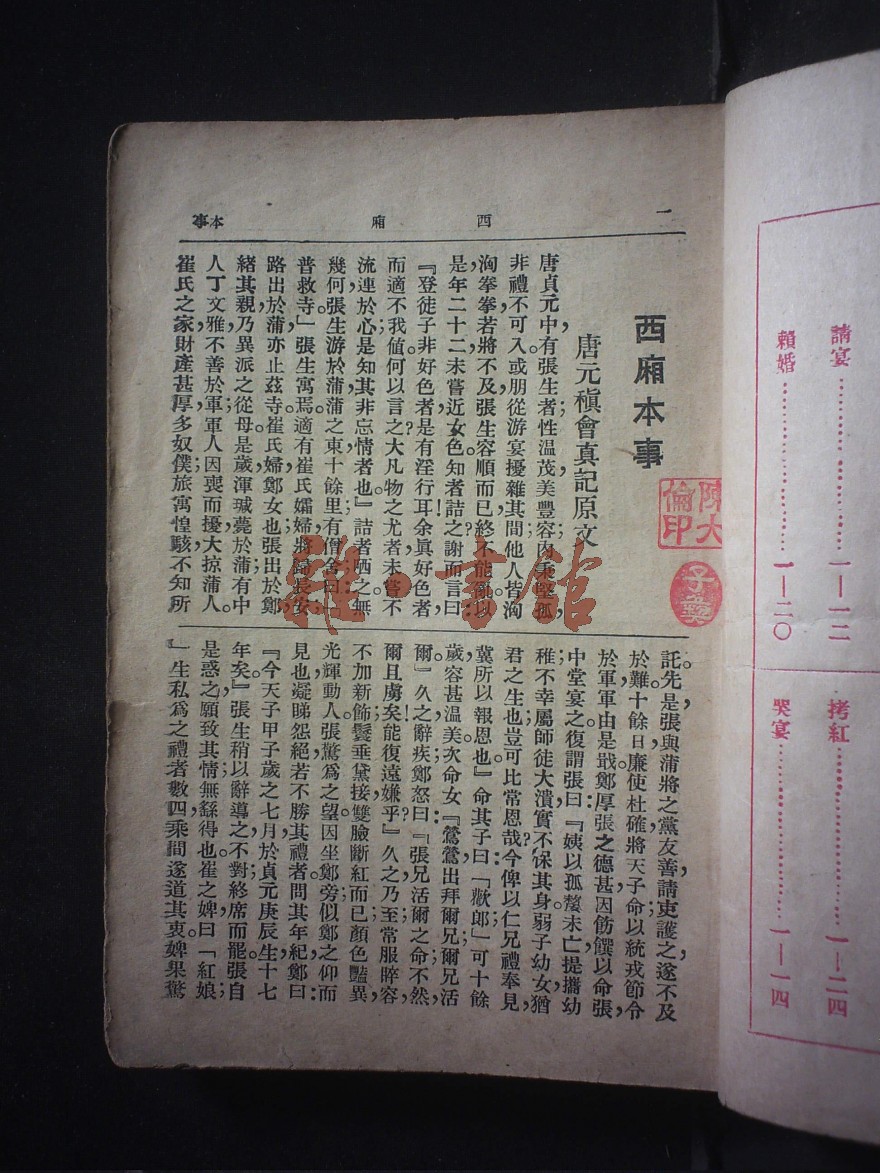 二　西廂　本事
西廂本事
唐元稹會真記原文
唐貞元中，有張生者，性温茂，美豐容，內秉堅孤，
非禮不可入。或朋從游宴，擾雜其間，他人皆洶
洶拳拳，若將不及；張生容順而已，終不能亂。以
是年二十二，未嘗近女色。知者詰之，謝而言曰：
『登徒子非好色者，是有淫行耳。余眞好色者，
而適不我値。何以言之？大凡物之尤者，未嘗不
流連於心，是知其非忘情者也。』詰者哂之。無
幾何，張生游於蒲。蒲之東十餘里，有僧舍曰「
普救寺。」張生寓焉。適有崔氏孀婦，將歸長安，
路出於蒲，亦止茲寺。崔氏婦，鄭女也；張出於鄭，
緒其親，乃異派之從母。是歲，渾瑊薨於蒲。有中
人丁文雅，不善於軍，軍人因喪而擾，大掠蒲人。
崔氏之家，財產甚厚，多奴僕。旅寓惶駭，不知所
託。先是，張與蒲將之黨友善，請吏護之，遂不及
於難。十餘日，廉使杜確將天子命以統戎節，令
於軍，軍由是戢。鄭厚張之德甚，因飭饌以命張，
中堂宴之。復謂張曰：『姨以孤嫠未亡，提攜幼
稚，不幸屬師徒大潰，實不保其身。弱子幼女，猶
君之生也，豈可比常恩哉？今俾以仁兄禮奉見，
冀所以報恩也。』命其子曰「歡郎」可十餘
歲，容甚温美。次命女：『鶯鶯出拜爾兄，爾兄活
爾。』久之，辭疾。鄭怒曰：『張兄活爾之命，不然，
爾且虜矣！能復遠嫌乎？』久之，乃至。常服睟容，
不加新飾，鬟垂黛接，雙臉斷紅而已。顏色豔異，
光輝動人。張驚，爲之禮。因坐鄭旁，似鄭之仰而
見也，凝睇怨絕，若不勝其禮者。問其年紀。鄭曰：
『今天子甲子歲之七月，於貞元庚辰，生十七
年矣。』張生稍以辭導之，不對，終席而罷。張自
是惑之，願致其情，無繇得也。崔之婢曰「紅娘
」生私爲之禮者數四，乘間遂道其衷。婢果驚
陳大
倫印
請宴…………一—一二
賴婚…………一—二〇
拷紅…………一—二四
哭宴…………一—一四
雜·書館